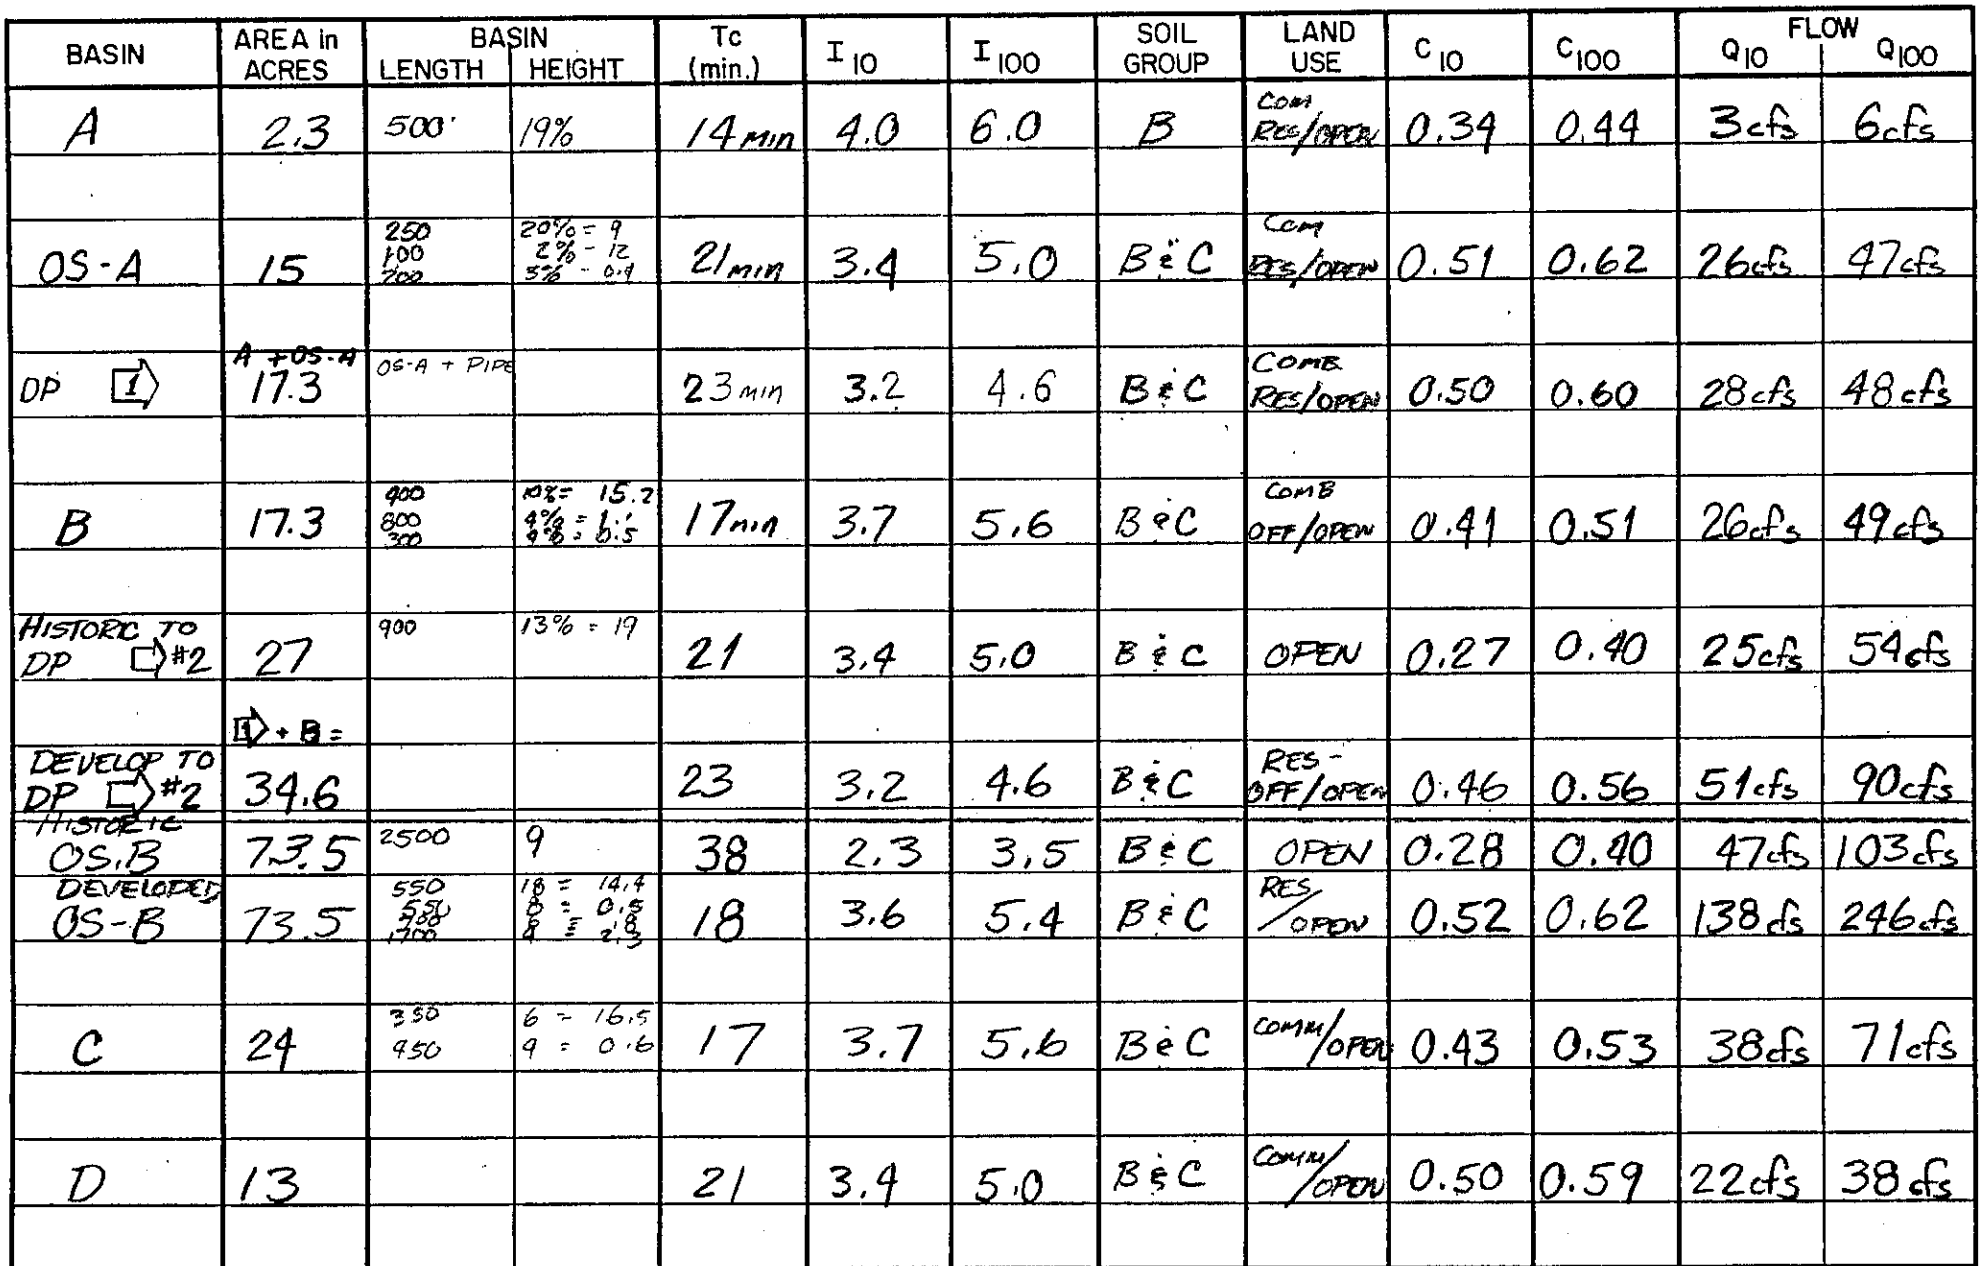 BASIN AREA in ACRES BASIN LENGTH HEIGHT Tc (min.) I 10 I 100 SOIL GROUP LAND USE C 10 C 100 FLOW Q10 Q100
A 2.3 500' 19% 14 min 4.0 6.0 B COM RES/OPEN 0.34 0.44 3cfs 6cfs
OS-A 15 250 100 700 20% = 9 2% - 12 21 min 3.4 5.0 B & C COM RES/OPEN 0.51 0.62 26cfs 47cfs
DP 1 A + OS-A 17.3 OS-A + PIPE 23 min 3.2 4.6 B & C COMB RES/OPEN 0.50 0.60 28cfs 48cfs
B 17.3 400 800 300 10% = 15.2 17min 3.7 5.6 B & C COMB OFF/OPEN 0.41 0.51 26cfs 49cfs
HISTORIC TO DP #2 27 900 13% = 19 21 3.4 5.0 B & C OPEN 0.27 0.40 25cfs 54cfs
1 + B =
DEVELOP TO DP #2 34.6 23 3.2 4.6 B & C RES - OFF/OPEN 0.46 0.56 51cfs 90cfs
HISTORIC OS.B 73.5 2500 9 38 2.3 3.5 B & C OPEN 0.28 0.40 47cfs 103cfs
DEVELOPED OS-B 73.5 550 550 1700 18 = 14.4 18 3.6 5.4 B & C RES/OPEN 0.52 0.62 138cfs 246cfs
C 24 350 950 6 = 16.5 9 = 0.6 17 3.7 5.6 B & C COMM/OPEN 0.43 0.53 38cfs 71cfs
D 13 21 3.4 5.0 B & C COMM/OPEN 0.50 0.59 22cfs 38cfs